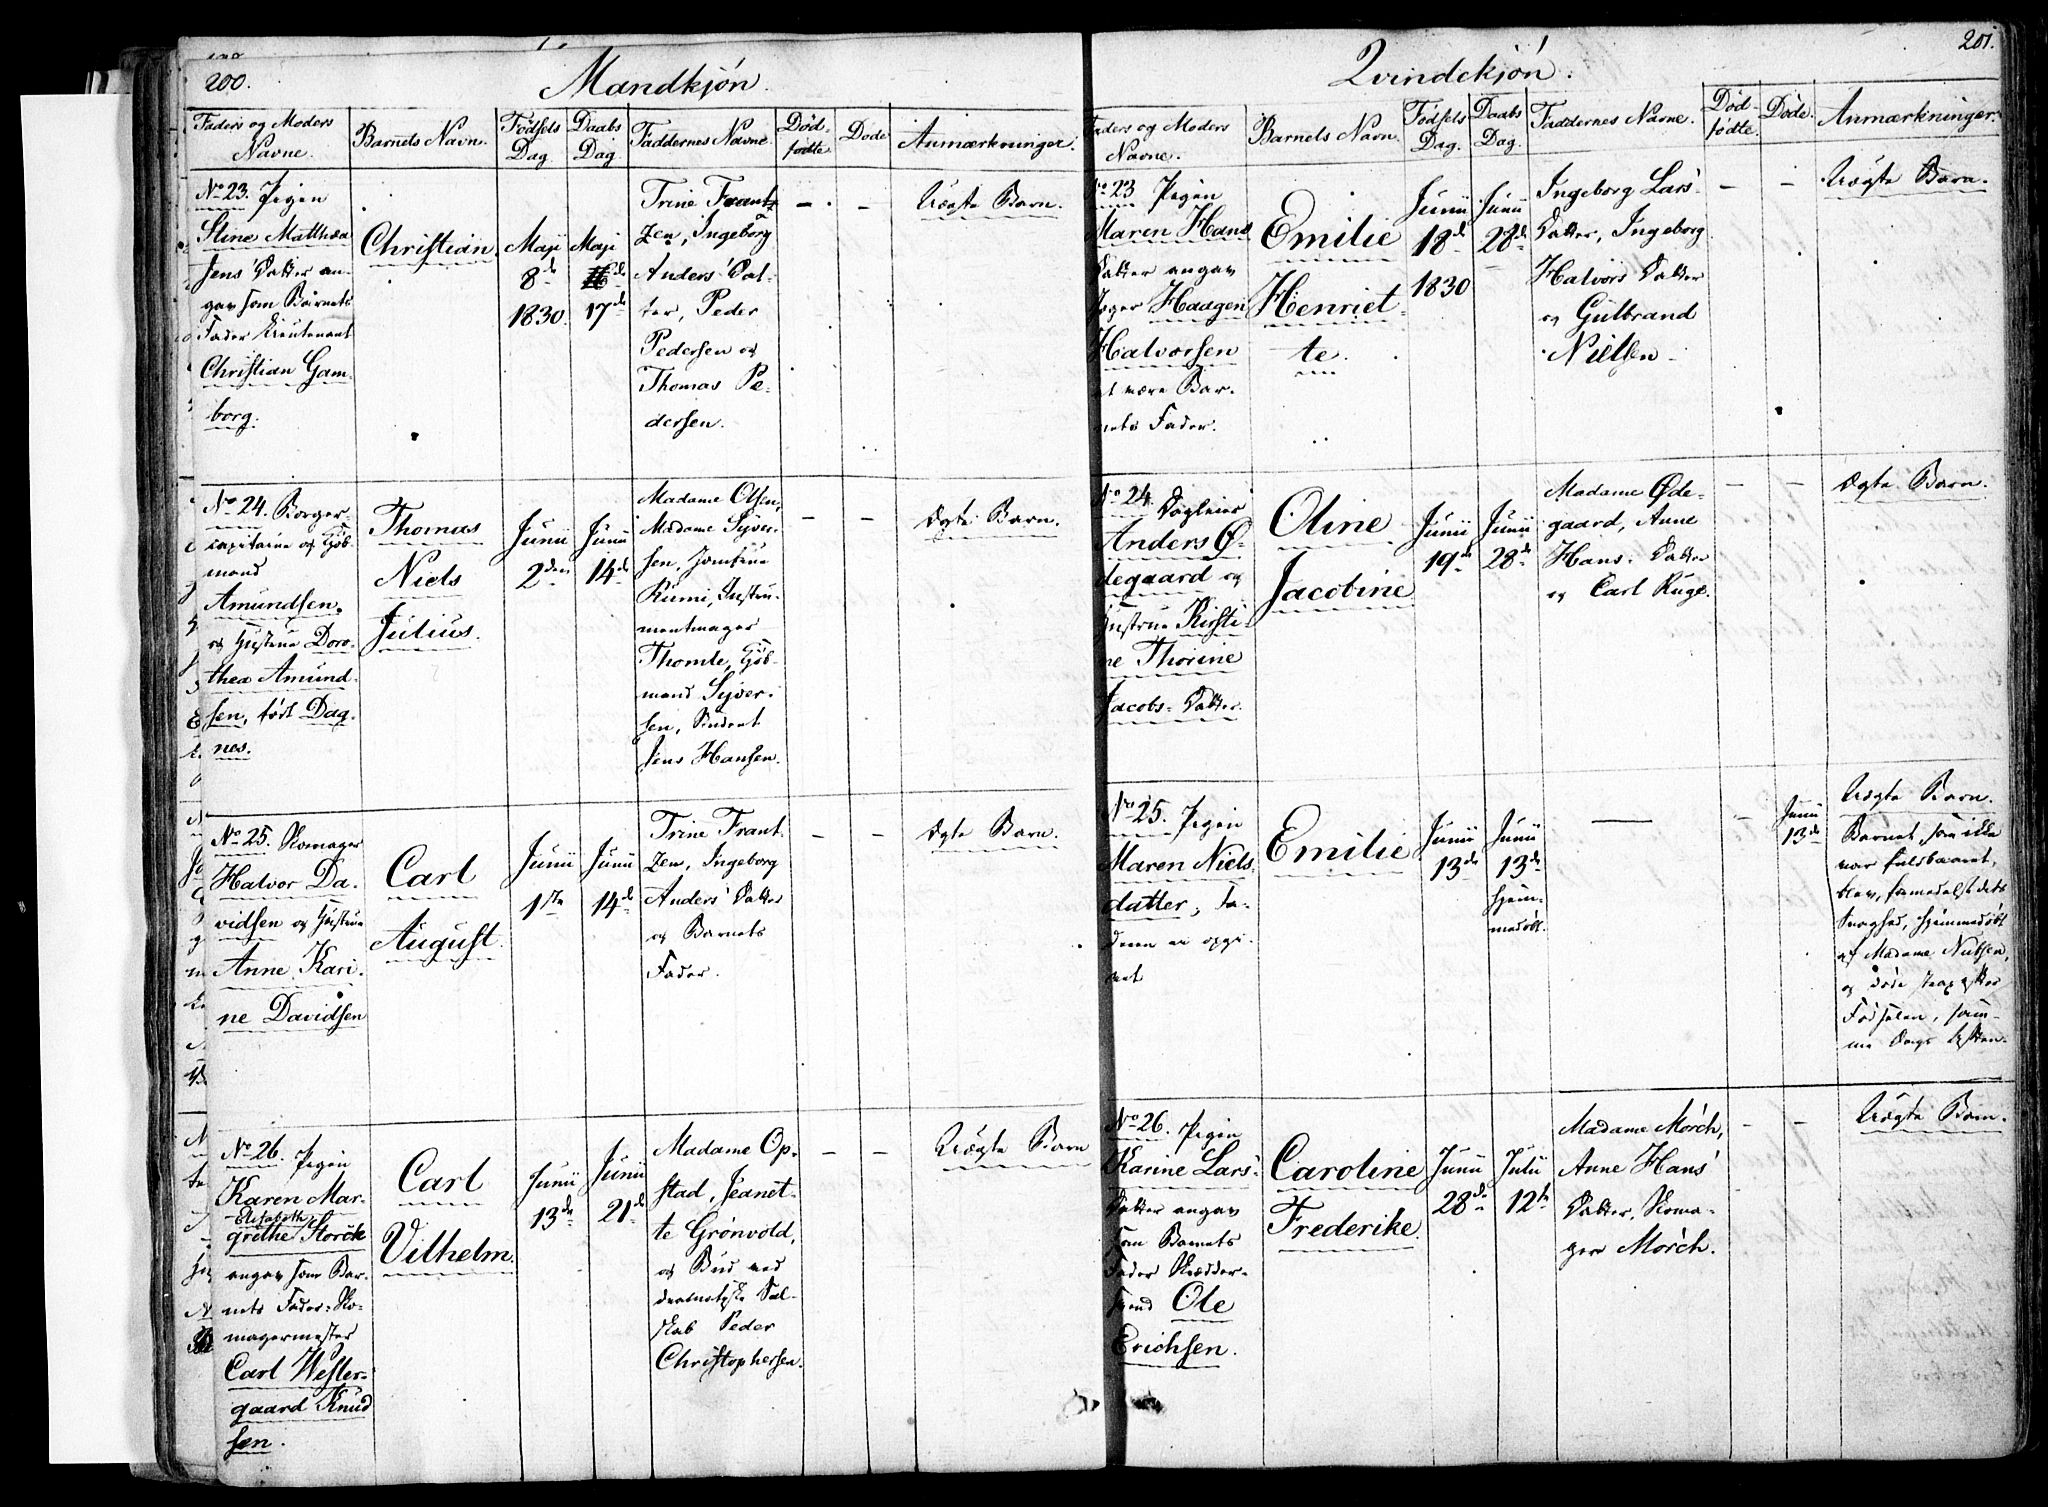 200.
Mandkjön.
Faders og Moders
Navne.
Barnets Navn.
Födsels
Dag
Daabs
Dag.
Faddernes Navne.
Död-
födte
Döde
Anmærkninger.
No 23. Pigen
Stine Matthea
Jens' Datter an-
gav som Barnets
Fader Lieutenant
Christian Gam-
borg.
Christian.
Maji
8de
1830.
Maji
17de
Trine Frant-
zen, Ingeborg
Anders' Dat-
ter, Peder
Pedersen og
Thomas Pe-
dersen.
–
–
Uægte Barn.
No 24. Borger-
capitaine og Kjöb-
mand
Amundsen
og Hustrue Doro-
thea Amund-
sen, född Dag-
nes.
Thomas
Niels
Julius.
Junii
2den
Junii
14de
Madame Olsen,
Madame Syver-
sen, Jomfrue
Rumi, Instru-
mentmager
Thomle, Kjöb-
mand Syver-
sen, Student
Jens Hansen.
–
–
Ægte Barn.
No 25. Skomager
Halvor Da-
vidsen og Hustrue
Anne Kari-
ne Davidsen
Carl
August.
Junii
1ste
Junii
14de
Trine Frant-
zen, Ingeborg
Anders' Datter
og Barnets
Fader.
–
–
Ægte Barn.
No 26. Pigen
Karen Mar-
Elisabeth
grethe Storck
angav som Bar-
nets Fader: Sko-
magermester
Carl Wester-
gaard Knud
sen.
Carl
Vilhelm.
Junii
13de
Junii
21de
Madame Op-
stad, Jeanet-
te Grönvold,
og Bud ved
dramatiske Sel-
skab Peder
Christophersen.
–
–
Uægte Barn
201.
Qvindekjön.
Faders og Moders
Navne.
Barnets Navn.
Födsels
Dag.
Daabs
Dag.
Faddernes Navne.
Död-
födte.
Döde.
Anmærkninger.
No 23 Pigen
Maren Hans
Datter angav
Jæger Haagen
Halvorsen
at være Bar-
nets Fader.
Emilie
Henriet-
te.
Junii
18de
1830
Junii
28de
Ingeborg Lars'
Datter, Ingeborg
Halvors Datter
og Gulbrand
Nielsen
–
–
Uægte Barn.
No 24. Dagleier
Anders Ö-
degaard og
Hustrue Kirsti-
ne Thorine
Jacobs-Datter.
Oline
Jacobine
Junii
19de
Junii
28de
Madame Øde-
gaard, Anne
Hans-Datter
og Carl Ruge.
–
–
Ægte Barn.
No 25. Pigen
Maren Niels
datter, Fa-
deren er opgi-
vet
Emilie
Junii
13de
Junii
13de
hjem-
medöbt.
–
–
Junii
13de
Uægte Barn.
Barnet, som ikke
var fuldbaaret,
blev, formedelst dets
Svaghed, hjemmedöbt
af Madame Nielsen,
og döde strax efter
Födselen, sam-
me Dags Aften.
No 26. Pigen
Karine Lars'-
Datter angav
som Barnets
Fader Skrædder-
svend Ole
Erichsen.
Caroline
Frederike.
Junii
28de
Julii
12te
Madame Mörch,
Anne Hans'
Datter, Skoma-
ger Mörch.
–
–
Uægte Barn.